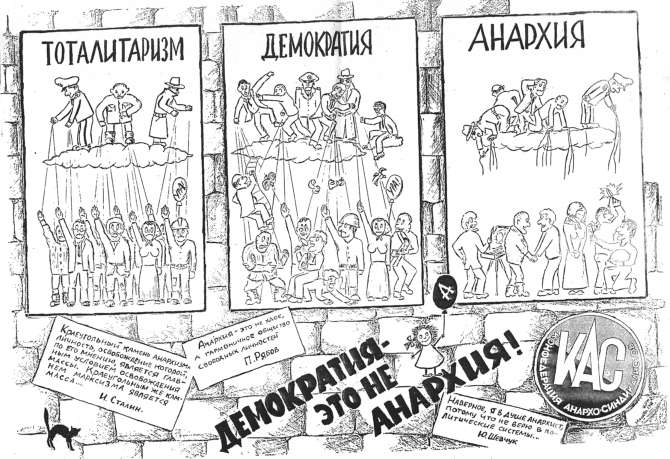 ТОТАЛИТАРИЗМ
ДЕМОКРАТИЯ
АНАРХИЯ
КРАЕУГОЛЬНЫЙ КАМЕНЬ АНАРХИЗМА -
ЛИЧНОСТЬ, ОСВОБОЖДЕНИЕ КОТОРОЙ,
ПО ЕГО МНЕНИЮ, ЯВЛЯЕТСЯ ГЛАВ-
НЫМ УСЛОВИЕМ ОСВОБОЖДЕНИЯ
МАССЫ. КРАЕУГОЛЬНЫМ ЖЕ КАМ-
НЕМ МАРКСИЗМА ЯВЛЯЕТСЯ
МАССА...
И. СТАЛИН.
АНАРХИЯ - ЭТО НЕ ХАОС,
А ГАРМОНИЧНОЕ ОБЩЕСТВО
СВОБОДНЫХ ЛИЧНОСТЕЙ
П. РЯБОВ
ДЕМОКРАТИЯ-
ЭТО НЕ
АНАРХИЯ!
А
КАС
КОНФЕДЕРАЦИЯ АНАРХО-СИНДИКАЛИСТОВ
НАВЕРНОЕ, Я В ДУШЕ АНАРХИСТ,
ПОТОМУ ЧТО НЕ ВЕРЮ В ПО-
ЛИТИЧЕСКИЕ СИСТЕМЫ...
Ю. ШЕВЧУК